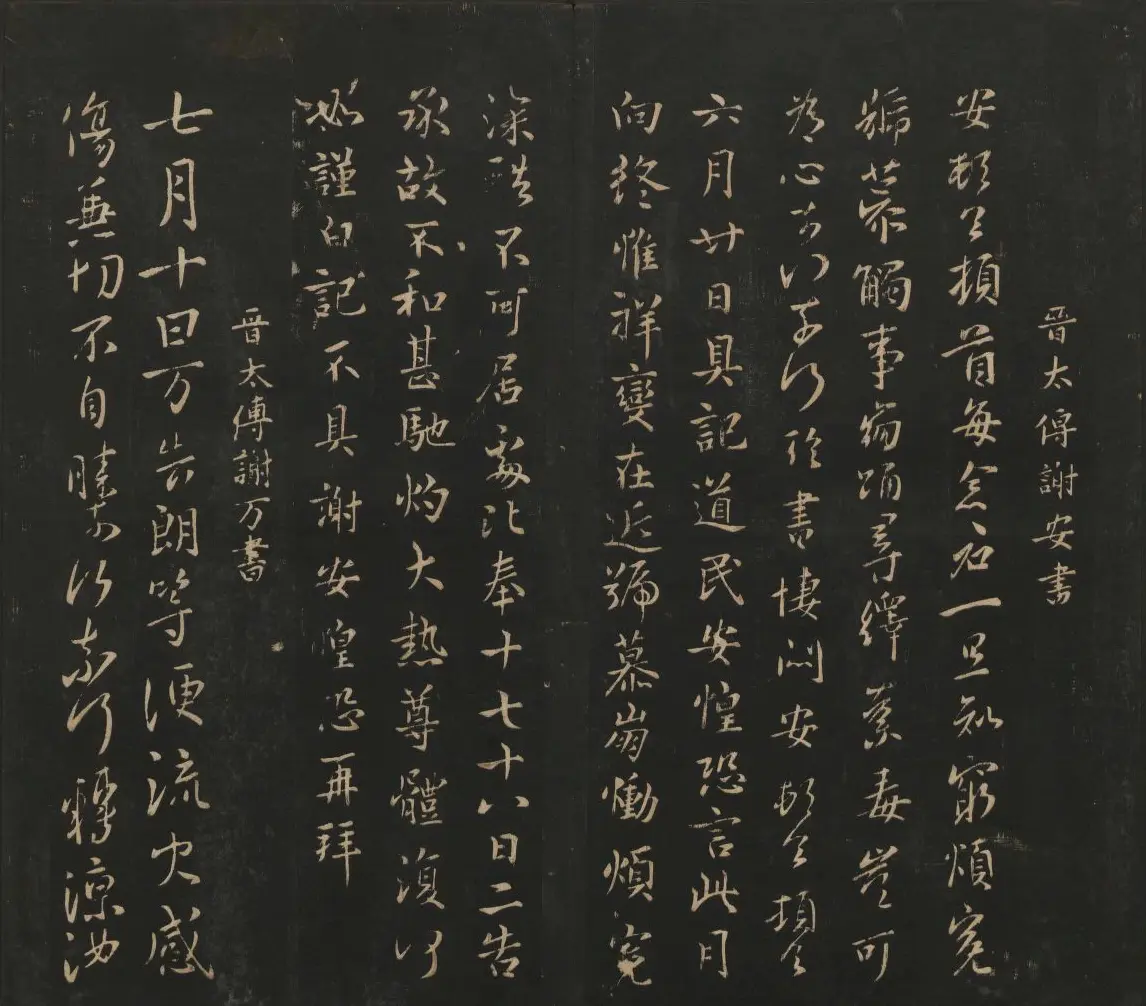 晋太傅謝安書
安頓首頓首每念君一旦知窮煩冤
號慕觸事崩踊尋繹荼毒豈可
為心奈何奈何臨書悽悶安頓首頓首
六月廿日具記道民安惶恐言此月
向終惟祥變在近號慕崩慟煩冤
深酷不可居處比奉十七十八日二告
承故不和甚馳灼大熱尊體復何
如謹白記不具謝安惶恐再拜
晋太傅謝万書
七月十日万告朗等便流火感
傷兼切不自勝奈何奈何轉涼汝